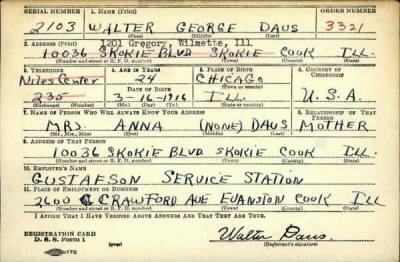 SERIAL NUMBER 1. NAME (Print) ORDER NUMBER
2103 WALTER GEORGE DAUS 3321
(First) (Middle) (Last)
2. ADDRESS (Print) 1201 Gregory, Wilmette, Ill
10036 SKOKIE BLVD SKOKIE COOK ILL.
(Number and street or R. F. D. number) (Town) (County) (State)
3. TELEPHONE 4. AGE IN YEARS 5. PLACE OF BIRTH 6. COUNTRY OF CITIZENSHIP
Niles Center 24 CHICAGO
DATE OF BIRTH (Town or county)
235 3-16-1916 ILL. U.S.A.
(Exchange) (Number) (Mo.) (Day) (Yr.) (State or country)
7. NAME OF PERSON WHO WILL ALWAYS KNOW YOUR ADDRESS 8. RELATIONSHIP OF THAT PERSON
MRS. ANNA (NONE) DAUS MOTHER
(Mr., Mrs., Miss) (First) (Middle) (Last)
9. ADDRESS OF THAT PERSON
10036 SKOKIE BLVD SKOKIE COOK ILL.
(Number and street or R. F. D. number) (Town) (County) (State)
10. EMPLOYER'S NAME
GUSTAFSON SERVICE STATION
11. PLACE OF EMPLOYMENT OR BUSINESS
2600 CRAWFORD AVE EVANSTON COOK ILL
(Number and street or R. F. D. number) (Town) (County) (State)
I AFFIRM THAT I HAVE VERIFIED ABOVE ANSWERS AND THAT THEY ARE TRUE.
REGISTRATION CARD
D. S. S. Form 1 Walter Daus.
(Registrant's signature)